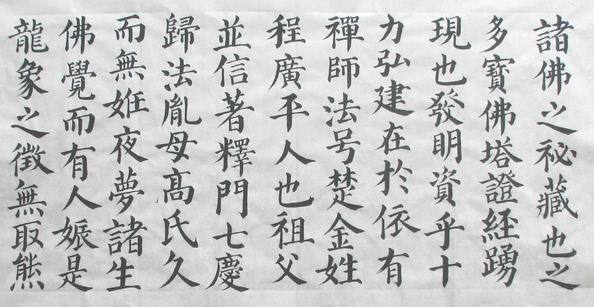 諸佛之祕藏也之
多寶佛塔證經踴
現也發明資乎十
力弘建在於依有
禪師法号楚金姓
程廣平人也祖父
並信著釋門七慶
歸法胤母髙氏久
而無姙夜夢諸生
佛覺而有人娠是
龍象之徵無取熊